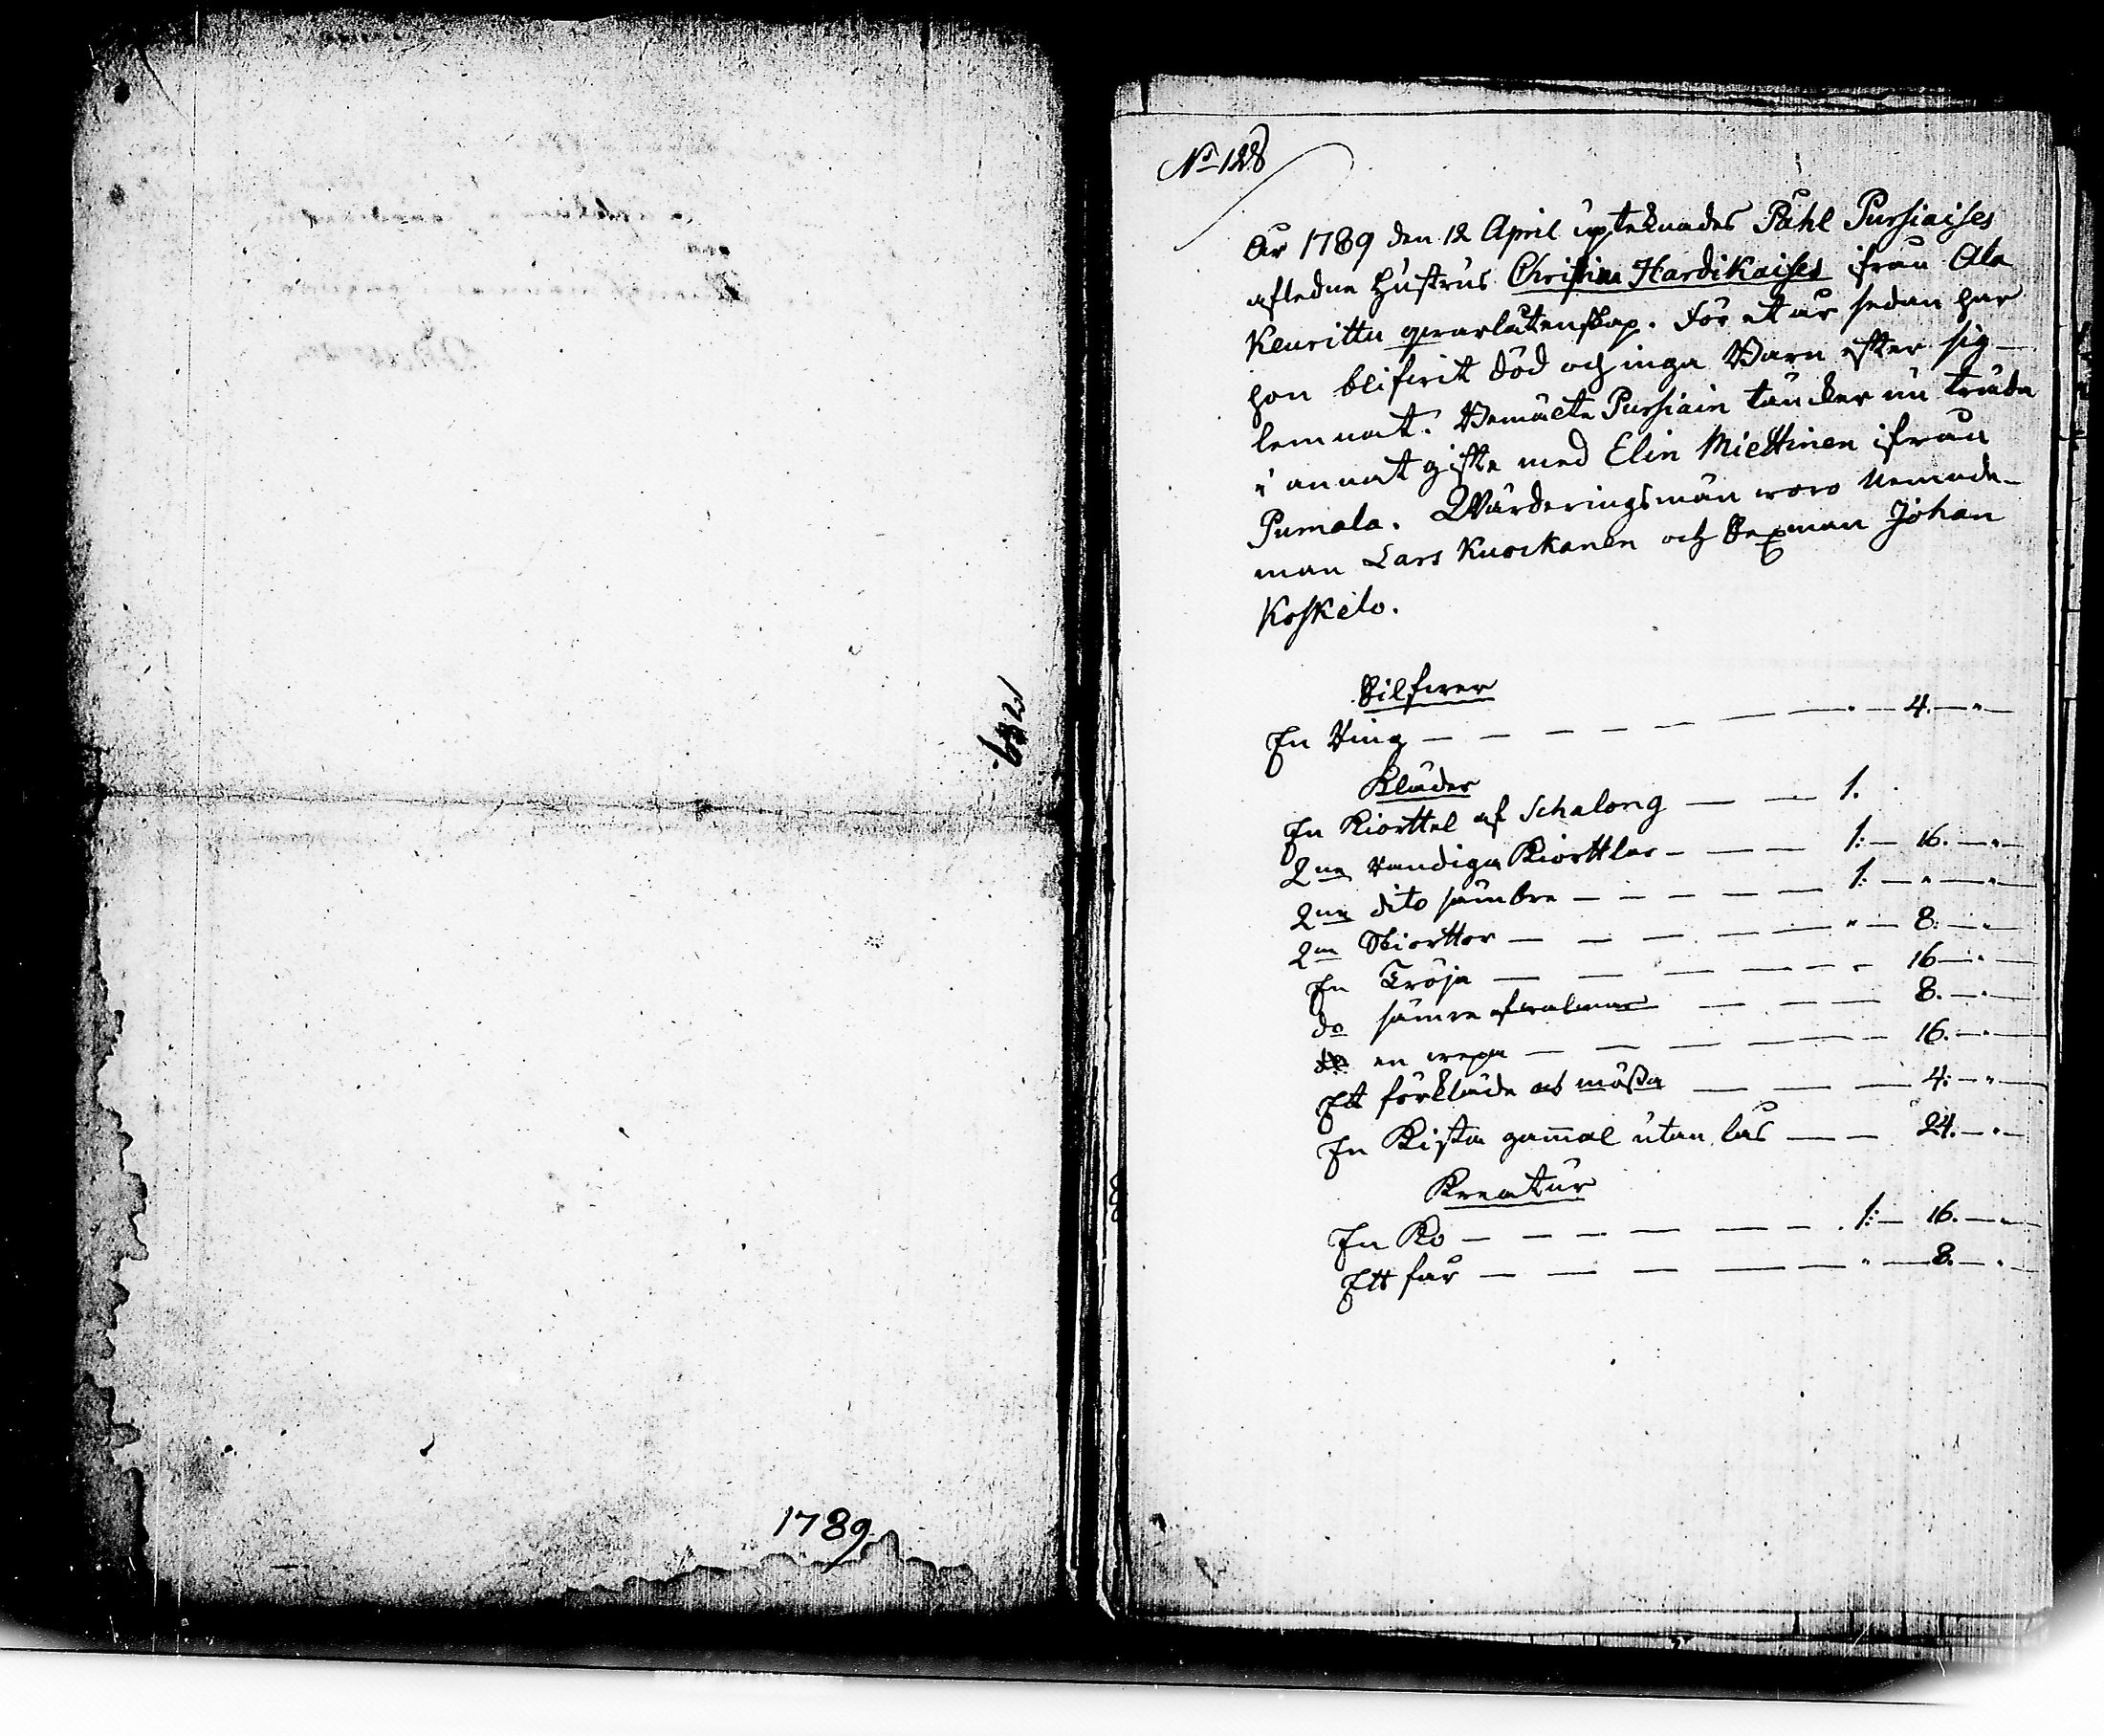 1789.
No 128
År 1789 den 12 April upteknades Påhl Pursiaises
afledne hustrus Christina Hardikaises ifrån Ala
Keuritta qvarlåtenskap. För et år sedan har
hon blifvit död och inga Barn efter sig
lemnat. Bemälte Pursiain täncker nu träda
i annat gifte med Elin Miettinen ifrån
Pumala. Wärderingsmän woro Nemnde-
man Lars Kuockanen och Sexman Johan
Koskelo.
Silfwer
En Ring — — — — — " — 4. — " —
Kläder
En Kiorttel af Schalong — — 1.
2ne Randiga Kiorttlar — — — 1: — 16. — " —
2ne dito sämbre — — — — 1: — " — " —
2ne Skiorttor — — — — " — 8: — " —
En Tröja — — — — 16 — " —
do sämre af walmar — — — 8. — " —
en — — — — 16. — " —
Ett förkläde och mössa — — — 4: — " —
En Kista gam̄al utan lås — — 24. — " —
Kreatur
En Ko — — — — — 1: — 16. — " —
Ett får — — — — — " — 8. — "